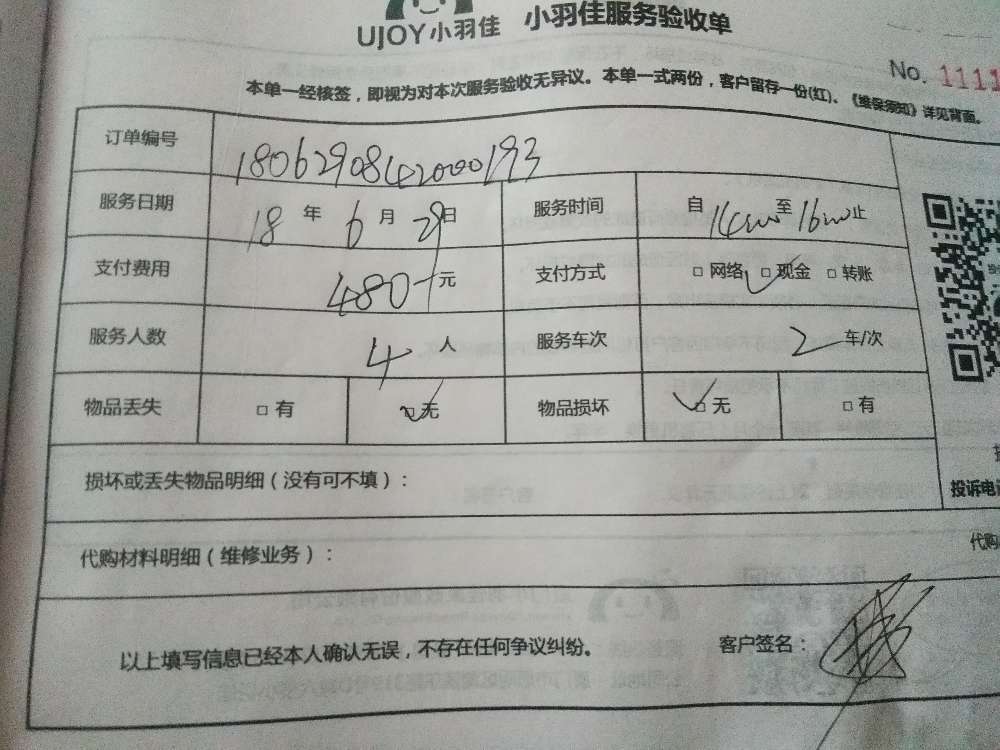 UJOY小羽佳 小羽佳服务验收单
No. 1111
本单一经核签，即视为对本次服务验收无异议。本单一式两份，客户留存一份(红)。《维保须知》详见背面。
订单编号 1806290842000193
服务日期 18 年 6 月 29 日 服务时间 自 14:00 至 16:00 止
支付费用 480 元 支付方式 □ 网络 □ 现金 □ 转账
服务人数 4 人 服务车次 2 车/次
物品丢失 □ 有 □ 无 物品损坏 □ 无 □ 有
损坏或丢失物品明细（没有可不填）：
投诉电话
代购材料明细（维修业务）：
代购
以上填写信息已经本人确认无误，不存在任何争议纠纷。 客户签名：